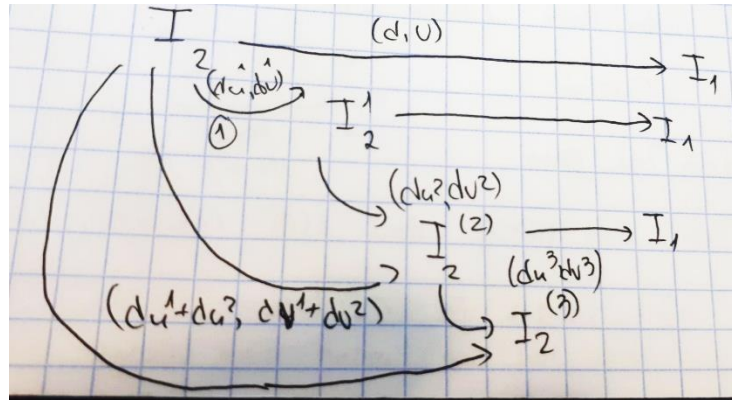 I₂ (d, u) I₁
(du¹, dv¹)
① I₂¹ I₁
(du², dv²)
I₂⁽²⁾ I₁
(du³, dv³)
(du¹+du², dv¹+dv²) I₂⁽³⁾